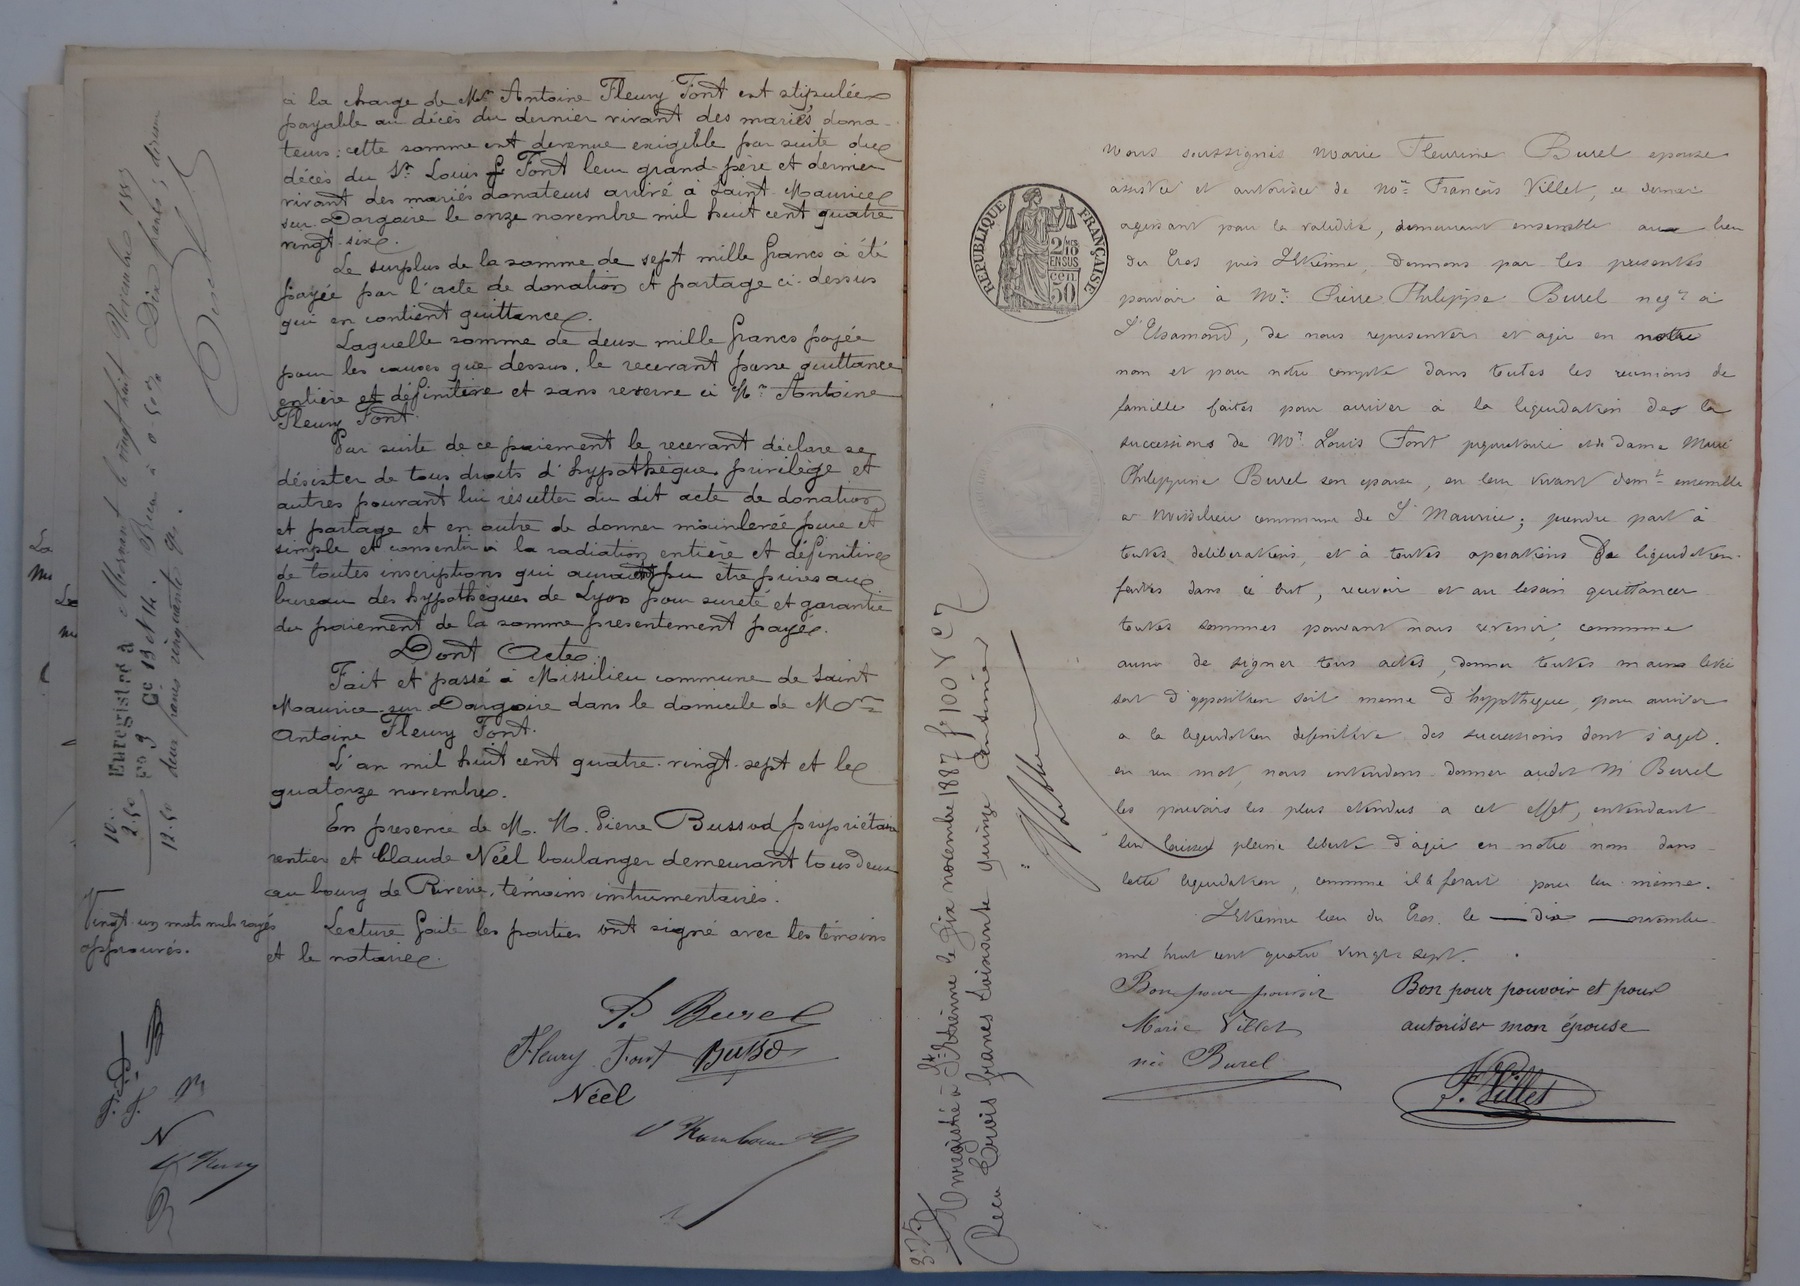 à la charge de Mr Antoine Fleury Font est stipulée
payable au décès du dernier vivant des mariés dona-
teurs; cette somme est devenue exigible par suite du
décès du Sr Louis Font leur grand-père et dernier
vivant des mariés donateurs arrivé à Saint-Maurice
sur-Dargoire le onze novembre mil huit cent quatre
vingt-six.
Le surplus de la somme de sept mille francs à été
payée par l'acte de donation et partage ci-dessus
qui en contient quittance.
Laquelle somme de deux mille francs payée
pour les causes que dessus, le recevant passe quittance
entière et définitive et sans reserve à Mr Antoine
Fleury Font.
Par suite de ce paiement le recevant déclare se
désister de tous droits d'hypothèque, privilège et
autres pouvant lui résulter du dit acte de donation
et partage et en outre de donner mainlevée pure et
simple et consentir à la radiation entière et définitive
de toutes inscriptions qui auraient pu être prises au
bureau des hypothèques de Lyon pour sureté et garantie
du paiement de la somme presentement payée.
Dont Acte
Fait et passé à Missilieu commune de Saint
Maurice-sur-Dargoire dans le domicile de Mr
Antoine Fleury Font.
L'an mil huit cent quatre-vingt-sept et le
quatorze novembre.
En presence de M. M. Pierre Bussod propriétaire
rentier et Claude Néel boulanger demeurant tous deux
au bourg de Riverie, témoins instrumentaires.
Lecture faite les parties ont signé avec les témoins
et le notaire.
P. Burel
Fleury Font Bussod
Néel
Vingt-un mots nuls rayés
approuvés.
F. F.
B
N
Enregistré à Mornant le vingt huit Novembre 1887
Fo 9 Ce 13
deux francs cinquante
10.
2.50
12.50
REPUBLIQUE FRANÇAISE
2/10 EN SUS
50 cen
Nous soussignés Marie Fleurine Burel epouse
assistée et autorisée de Mr François Villet, ce dernier
agissant pour la validité, demeurant ensemble au lieu
du Cros près St Etienne, donnons par les presentes
pouvoir à Mr Pierre Philippe Burel negt à
St Chamond, de nous representer et agir en notre
nom et pour notre compte dans toutes les reunions de
famille faites pour arriver à la liquidation des la
successions de Mr Louis Font proprietaire et de dame Marie
Philippine Burel son epouse, en leur vivant demt ensemble
à Missilieu commune de St Maurice; prendre part à
toutes deliberations, et à toutes operations de liquidation
faites dans ce but, recevoir et au besoin quittancer
toutes sommes pouvant nous revenir, comme
aussi de signer tous actes, donner toutes mains levée
soit d'opposition soit meme d'hypotheque, pour arriver
a la liquidation definitive des successions dont s'agit.
en un mot, nous entendons donner audit Mr Burel
les pouvoirs les plus etendus a cet effet, entendant
lui laisser pleine liberté d'agir en notre nom dans
cette liquidation, comme il le ferait pour lui-même.
St Etienne lieu du Cros, le dix novembre
mil huit cent quatre vingt sept.
Bon pour pouvoir
Marie Villet
née Burel
Bon pour pouvoir et pour
autoriser mon épouse
F. Villet
375
Enregistré à St Etienne le Dix novembre 1887 fo 100 Vo C 7
Recu Trois francs soixante quinze centimes